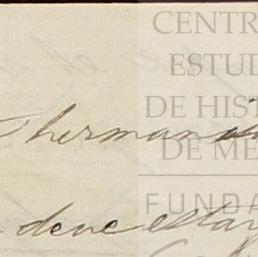 CENTR
ESTUD
DE HIST
DE ME
FUNDA
hermana
deve estar